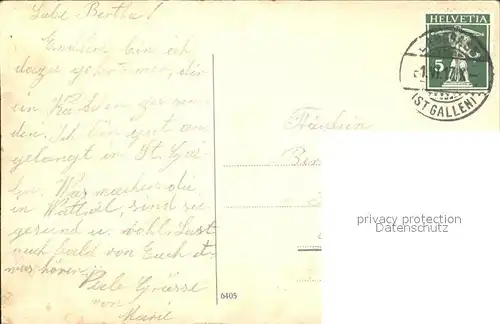 Liebe Bertha!
Endlich bin ich
dazu gekommen, dir
ein Kärtchen zu sen-
den. Ich bin gut an
gelangt in St. Gal-
len. Was machen die
in Wattwil, sind sie
gesund u. wohl. Lasst
auch bald von Euch et-
was hören.
Viele Grüsse
von
Marie
HELVETIA
5
(ST GALLEN)
Fräulein
Ber
privacy protection
Datenschutz
6405